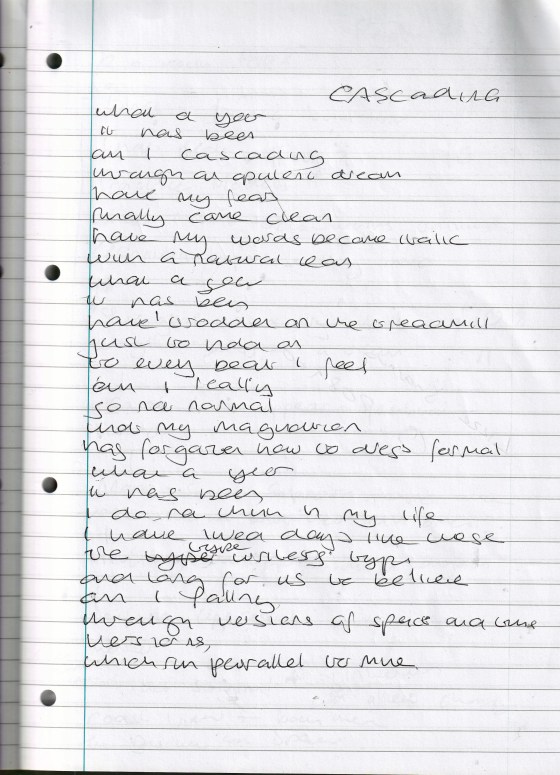 CASCADING
what a year
it has been
am I cascading
through an opulent dream
have my fears
finally come clean
have my words become italic
with a natural lean
what a year
it has been
have I trodden on the treadmill
just to hold on
to every beat I feel
am I really
so not normal
that my
has forgotten how to dress formal
what a year
it has been
I do not think in my life
I have lived days like these
the type writers type
and long for us to believe
am I falling
through versions of space and time
versions,
which run parallel to mine